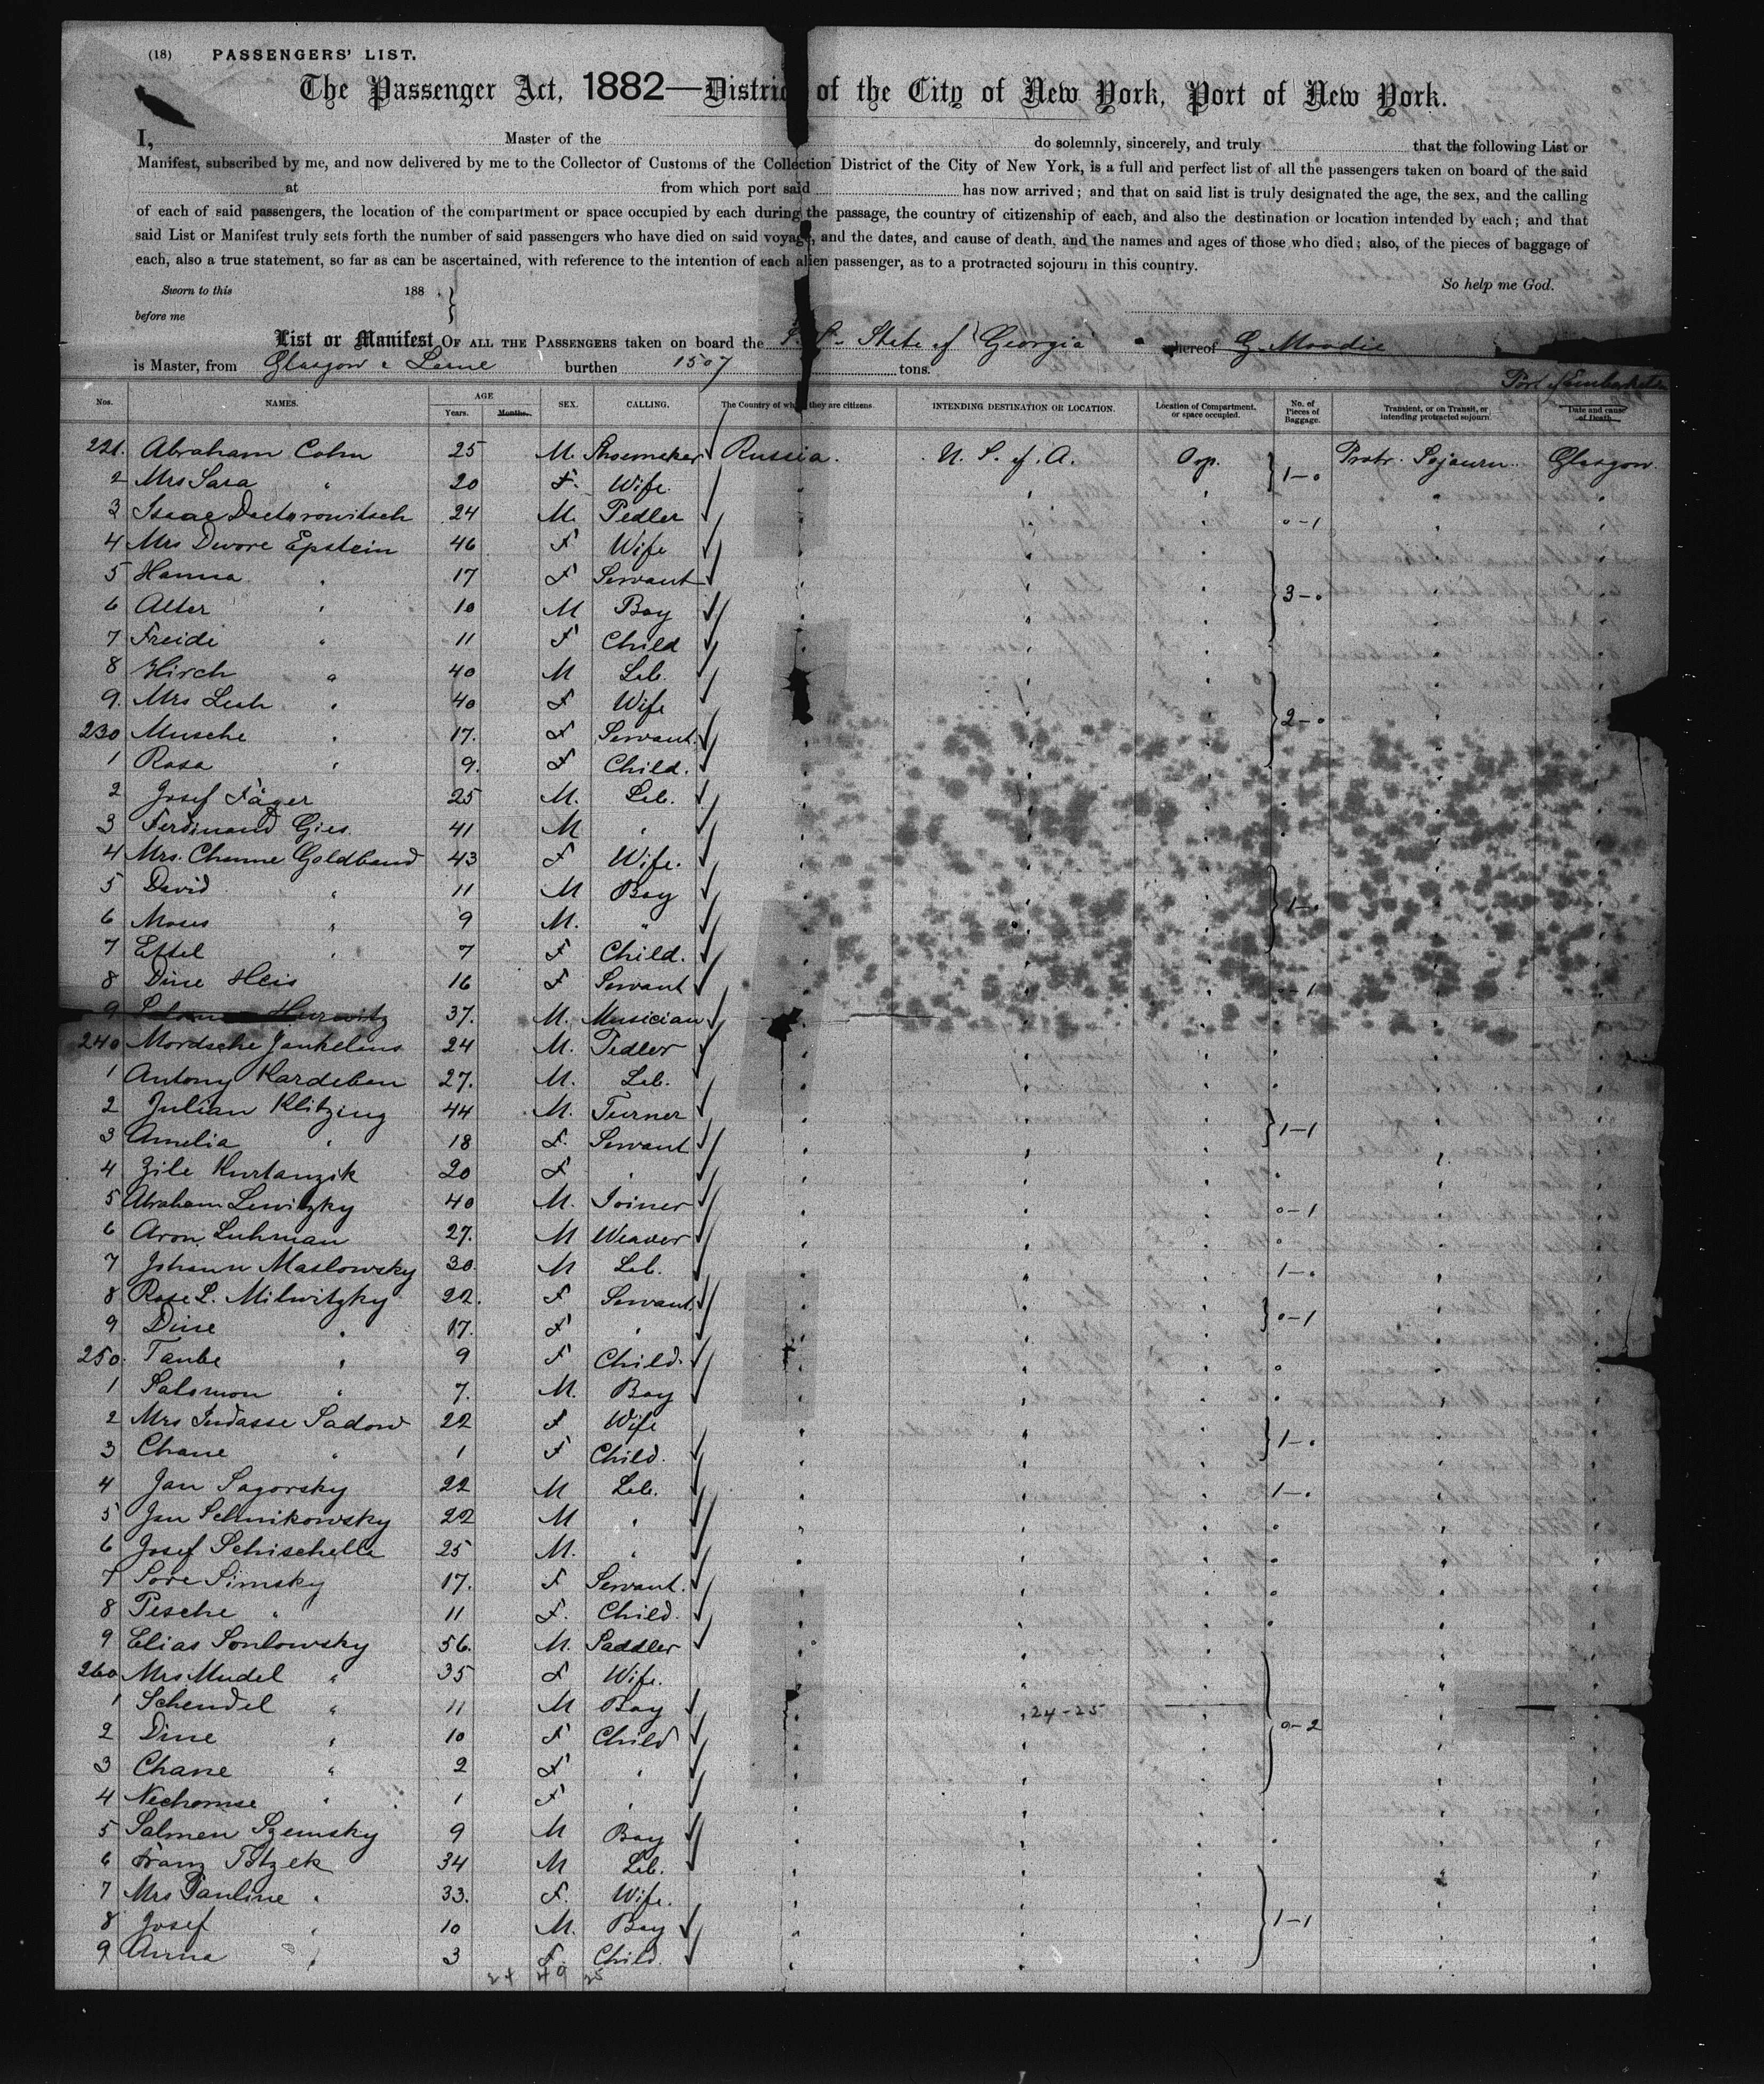 (18) PASSENGERS' LIST.
The Passenger Act, 1882—District of the City of New York, Port of New York.
I, Master of the do solemnly, sincerely, and truly that the following List or
Manifest, subscribed by me, and now delivered by me to the Collector of Customs of the Collection District of the City of New York, is a full and perfect list of all the passengers taken on board of the said
at from which port said has now arrived; and that on said list is truly designated the age, the sex, and the calling
of each of said passengers, the location of the compartment or space occupied by each during the passage, the country of citizenship of each, and also the destination or location intended by each; and that
said List or Manifest truly sets forth the number of said passengers who have died on said voyage, and the dates, and cause of death, and the names and ages of those who died; also, of the pieces of baggage of
each, also a true statement, so far as can be ascertained, with reference to the intention of each alien passenger, as to a protracted sojourn in this country.
Sworn to this 188 So help me God.
before me
List or Manifest OF ALL THE PASSENGERS taken on board the S.S. State of Georgia whereof G. Moodie
is Master, from Glasgow & Larne burthen 1507 tons.
Port of Embarkation
Nos. NAMES. AGE Years. Months. SEX. CALLING. The Country of which they are citizens. INTENDING DESTINATION OR LOCATION. Location of Compartment, or space occupied. No. of Pieces of Baggage. Transient, or on Transit, or intending protracted sojourn. Date and cause of Death.
221. Abraham Cohn 25 M. Shoemaker Russia. U. S. of A. Protr. Sojourn. Glasgow.
2 Mrs Sara " 20 F. Wife. 1-0
3 Isaac Doctorowitsch 24 M. Pedler 0-1
4 Mrs Dwore Epstein 46 F Wife
5 Hanna " 17 F Servant
6 Alter " 10 M Boy 3-0
7 Freide " 11 F Child
8 Hirch " 40 M Lab.
9. Mrs Leah " 40 F Wife
230 Musche " 17. F Servant. 2-0
1 Rosa " 9. F Child.
2 Josef Jäger 25 M. Lab.
3 Ferdinand Gies. 41 M "
4 Mrs. Channe Goldband 43 F Wife.
5 David " 11 M Boy
6 Moses " 9 M. " 1-0
7 Ettel " 7 F Child.
8 Dine Heis 16 F Servant
9 Hurowitz 37. M. Musician
240 Mordsche Jankelens 24 M. Pedler
1 Antony Kardeben 27. M. Lab.
2 Julian Klitzing 44 M. Turner
3 Amelia " 18 F. Servant 1-1
4 Zile Kurtanzik 20 F "
5 Abraham Lewitzky 40 M. Joiner 0-1
6 Aron Luhman 27. M Weaver
7 Johann Maslowsky 30. M Lab. 1-0
8 Rose L. Milwitzky 22. F Servant. 0-1
9 Dine " 17. F "
250. Taube " 9 F Child.
1 Salomon " 7. M. Boy
2 Mrs Judasse Sadow 22 F Wife
3 Chane " 1 F Child. 1-0
4 Jan Sagorsky 22 M Lab. 1-0
5 Jan Schnikowsky 22 M "
6 Josef Schischella 25 M. "
7 Sore Simsky 17. F Servant.
8 Pesche " 11 F. Child.
9 Elias Sonlowsky 56. M. Saddler
260 Mrs Mudel " 35 F Wife.
1 Schendel " 11 M Boy 24-25
2 Dine " 10 F Child 0-2
3 Chane " 2 F "
4 Nechomse " 1 F "
5 Salmen Szemsky 9 M Boy
6 Franz Totzek 34 M Lab.
7 Mrs Pauline " 33. F. Wife.
8 Josef " 10 M. Boy 1-1
9 Anna " 3 F. Child.
24 49 25